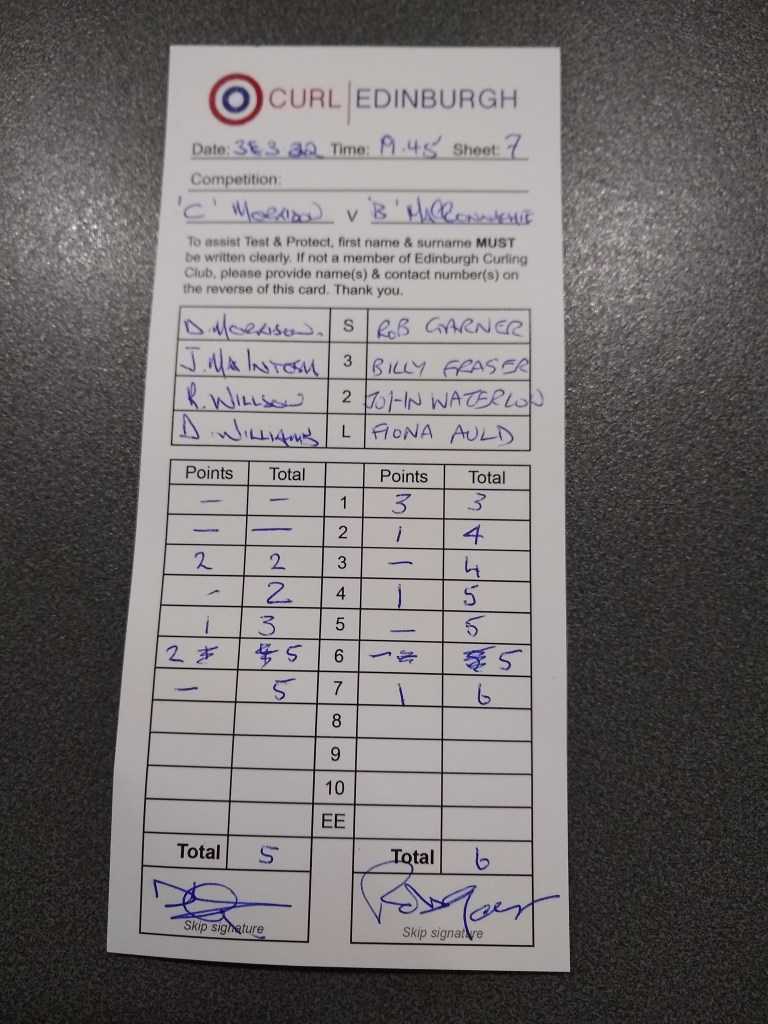 CURL | EDINBURGH
Date: 3.3.22 Time: 19.45 Sheet: 7
Competition:
'C' MORRISON v 'B'
To assist Test & Protect, first name & surname MUST
be written clearly. If not a member of Edinburgh Curling
Club, please provide name(s) & contact number(s) on
the reverse of this card. Thank you.
D. MORRISON. S ROB GARNER
J. MAINTOSH 3 BILLY FRASER
R. WILLSON 2 JOHN WATERLOW
D. WILLIAMS L FIONA AULD
Points Total Points Total
– – 1 3 3
– – 2 1 4
2 2 3 – 4
- 2 4 1 5
1 3 5 – 5
2 5 6 – 5
– 5 7 1 6
8
9
10
EE
Total 5 Total 6
Skip signature Skip signature